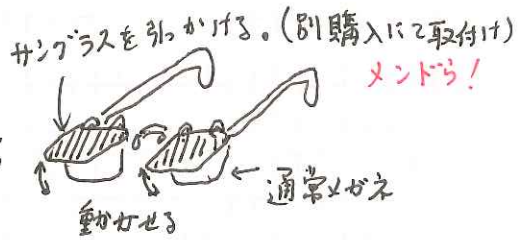 サングラスを引っかける。(別購入にて取付け)
メンドら!
通常メガネ
動かせる